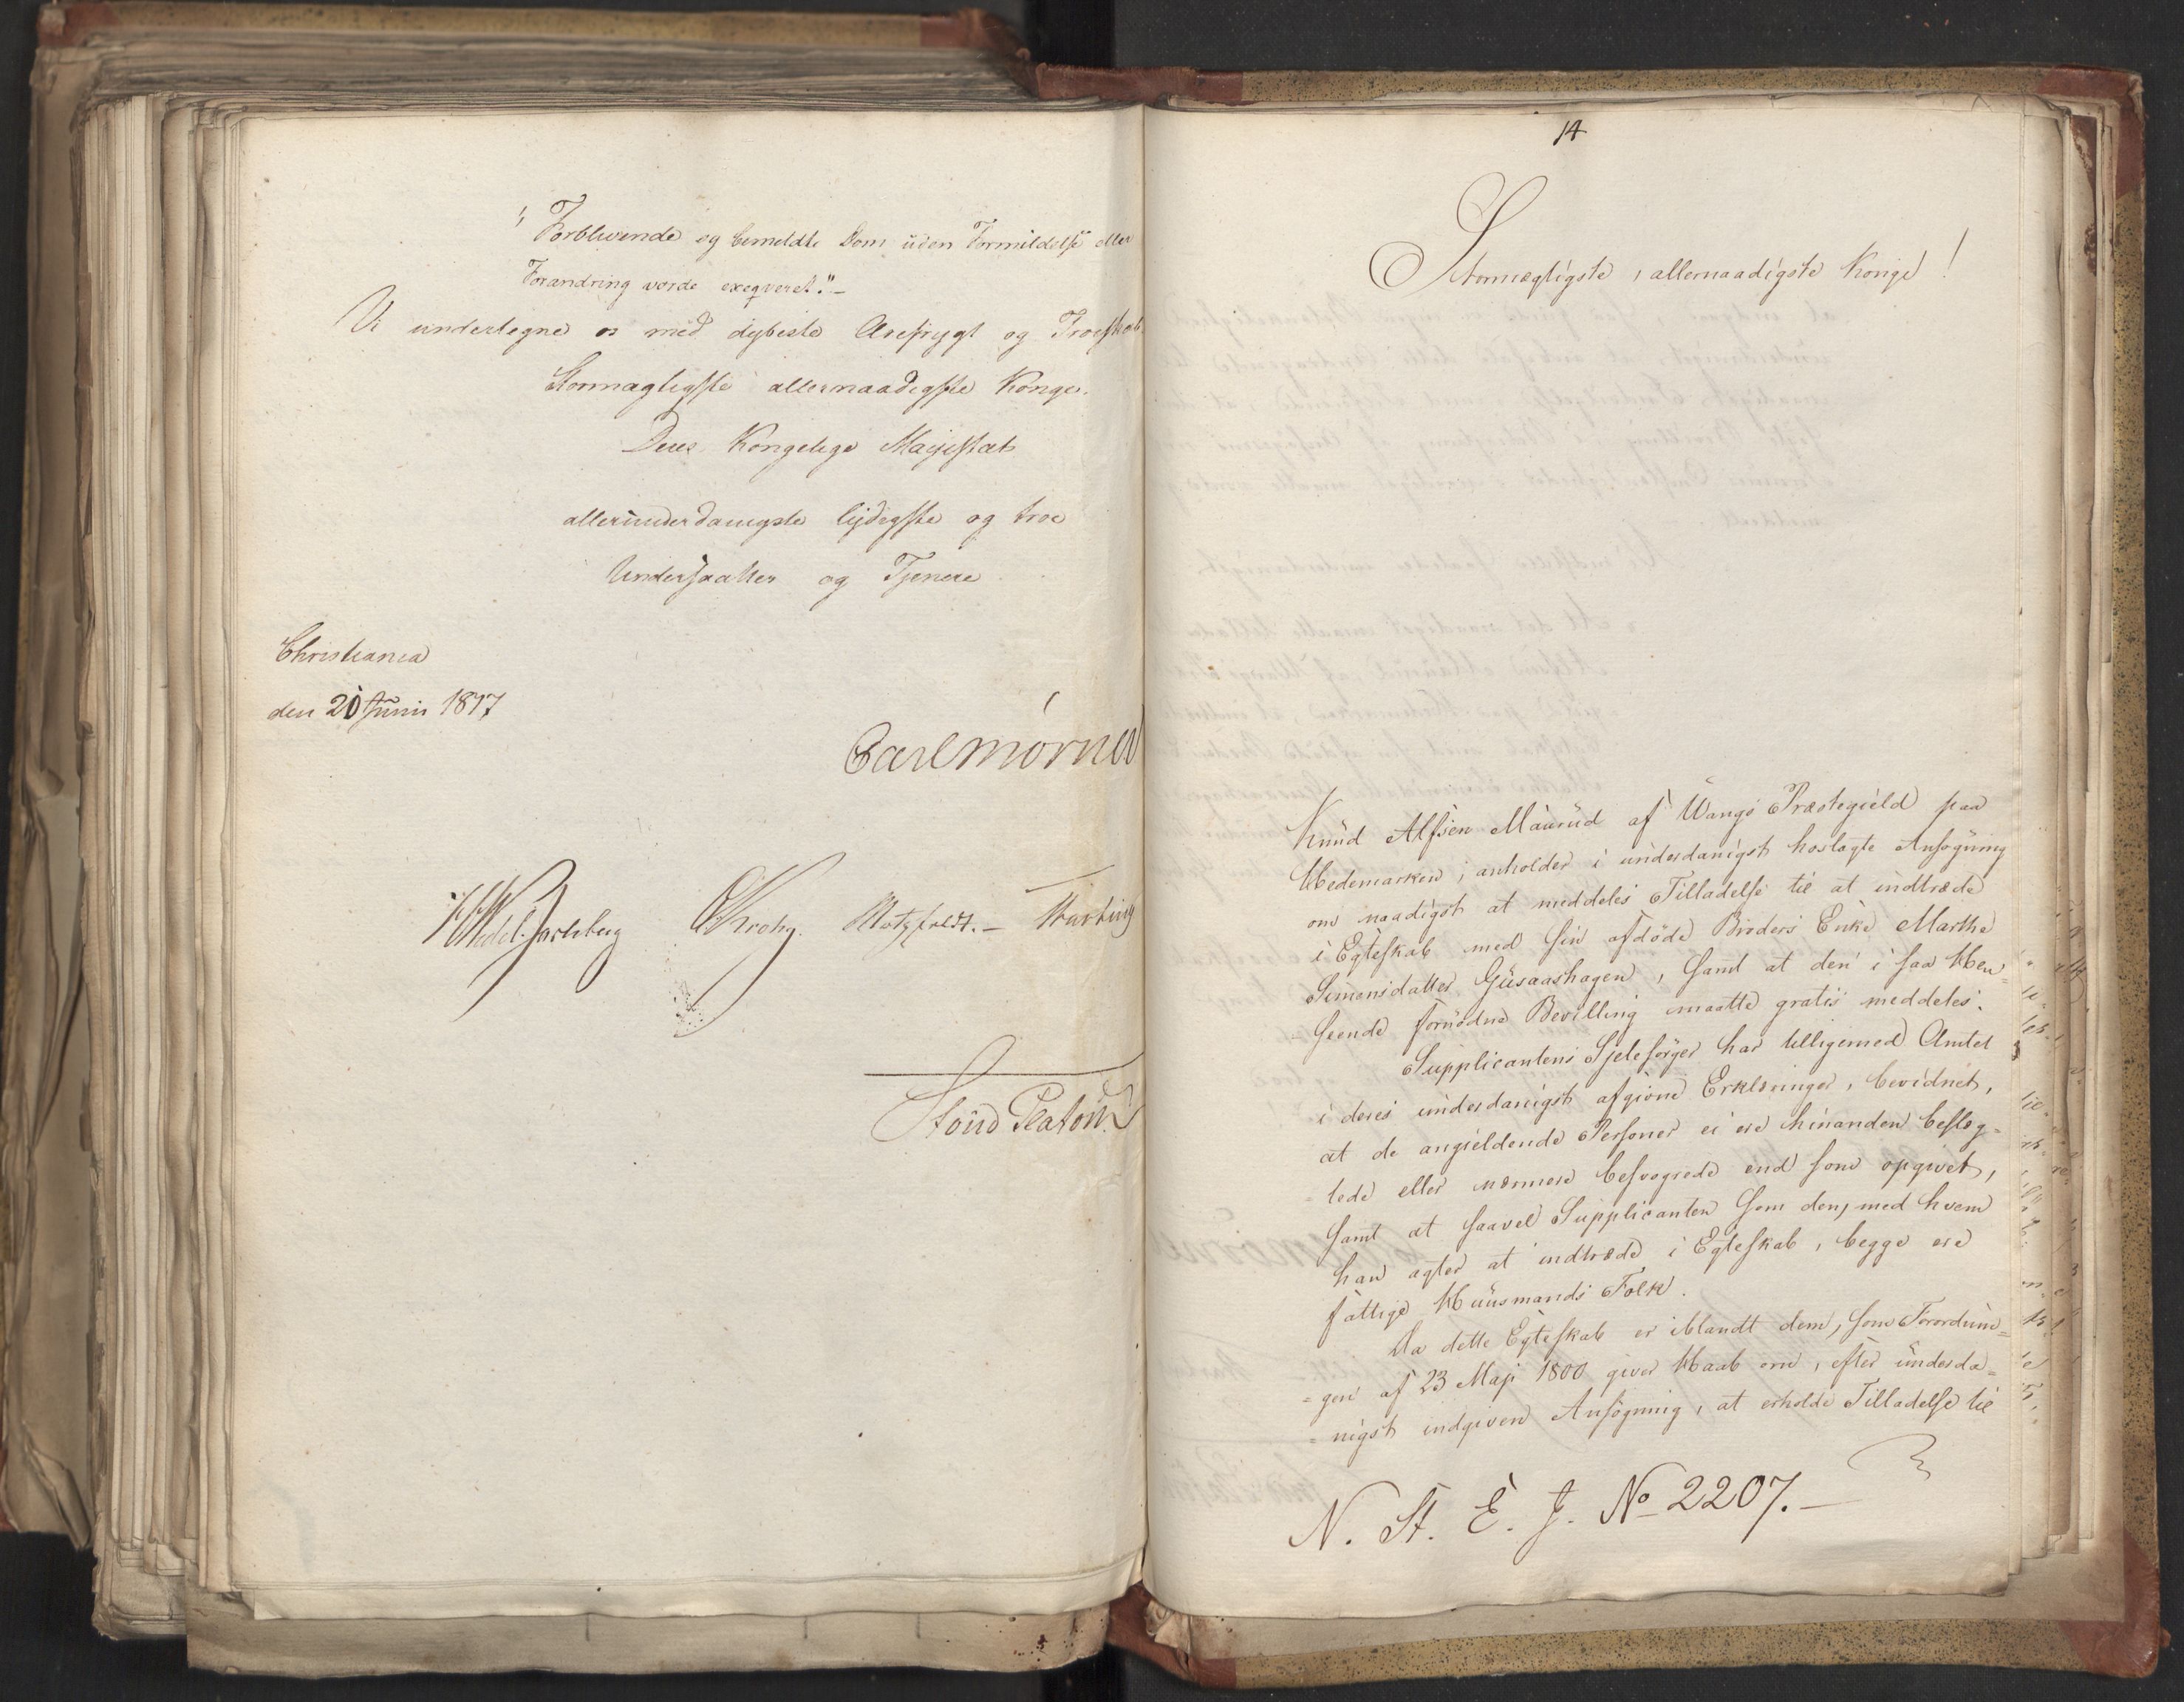 "Forblivende og bemeldte Dom uden Formildelse eller
Forandring vorde exeqveret."-
Vi undertegne os med dybeste Ærefrygt og Troeskab
Stormægtigste allernaadigste Konge.
Deres Kongelige Majestæts
allerunderdanigste lydigste og troe
Undersaatter og Tjenere
Christiania
den 20 Junii 1817
Carl Mörner
HWedel Jarlsberg Krohg. Motzfeldt.- 
Stoud Platou
14
Stormægtigste, allernaadigste Konge!
Knud Alfsen Maurud af Wangs Præstegield paa
Hedemarken, anholder i underdanigst hoslagte Ansögning
om naadigst at meddeles Tilladelse til at indtræde
i Egteskab med sin afdöde Broders Enke Marthe
Simensdatter Gusaashagen, samt at den i saa Hen=
=seende fornödne Bevilling maatte gratis meddeles.
Supplicantens Sjelesörger har tilligemed Amtet
i deres underdanigst afgivne Erklæringer, bevidnet,
at de angieldende Personer ei ere hinanden beslæg=
=tede eller nærmere besvogrede end som opgivet,
samt at saavel Supplicanten som den, med hvem
han agter at indtræde i Egteskab, begge ere
fattige Huusmands Folk.
Da dette Egteskab er iblandt dem, som Forordnin=
=gen af 23 Maji 1800 giver Haab om, efter underda=
=nigst indgiven Ansögning, at erholde Tilladelse til
N. St. E. J. No 2207.-